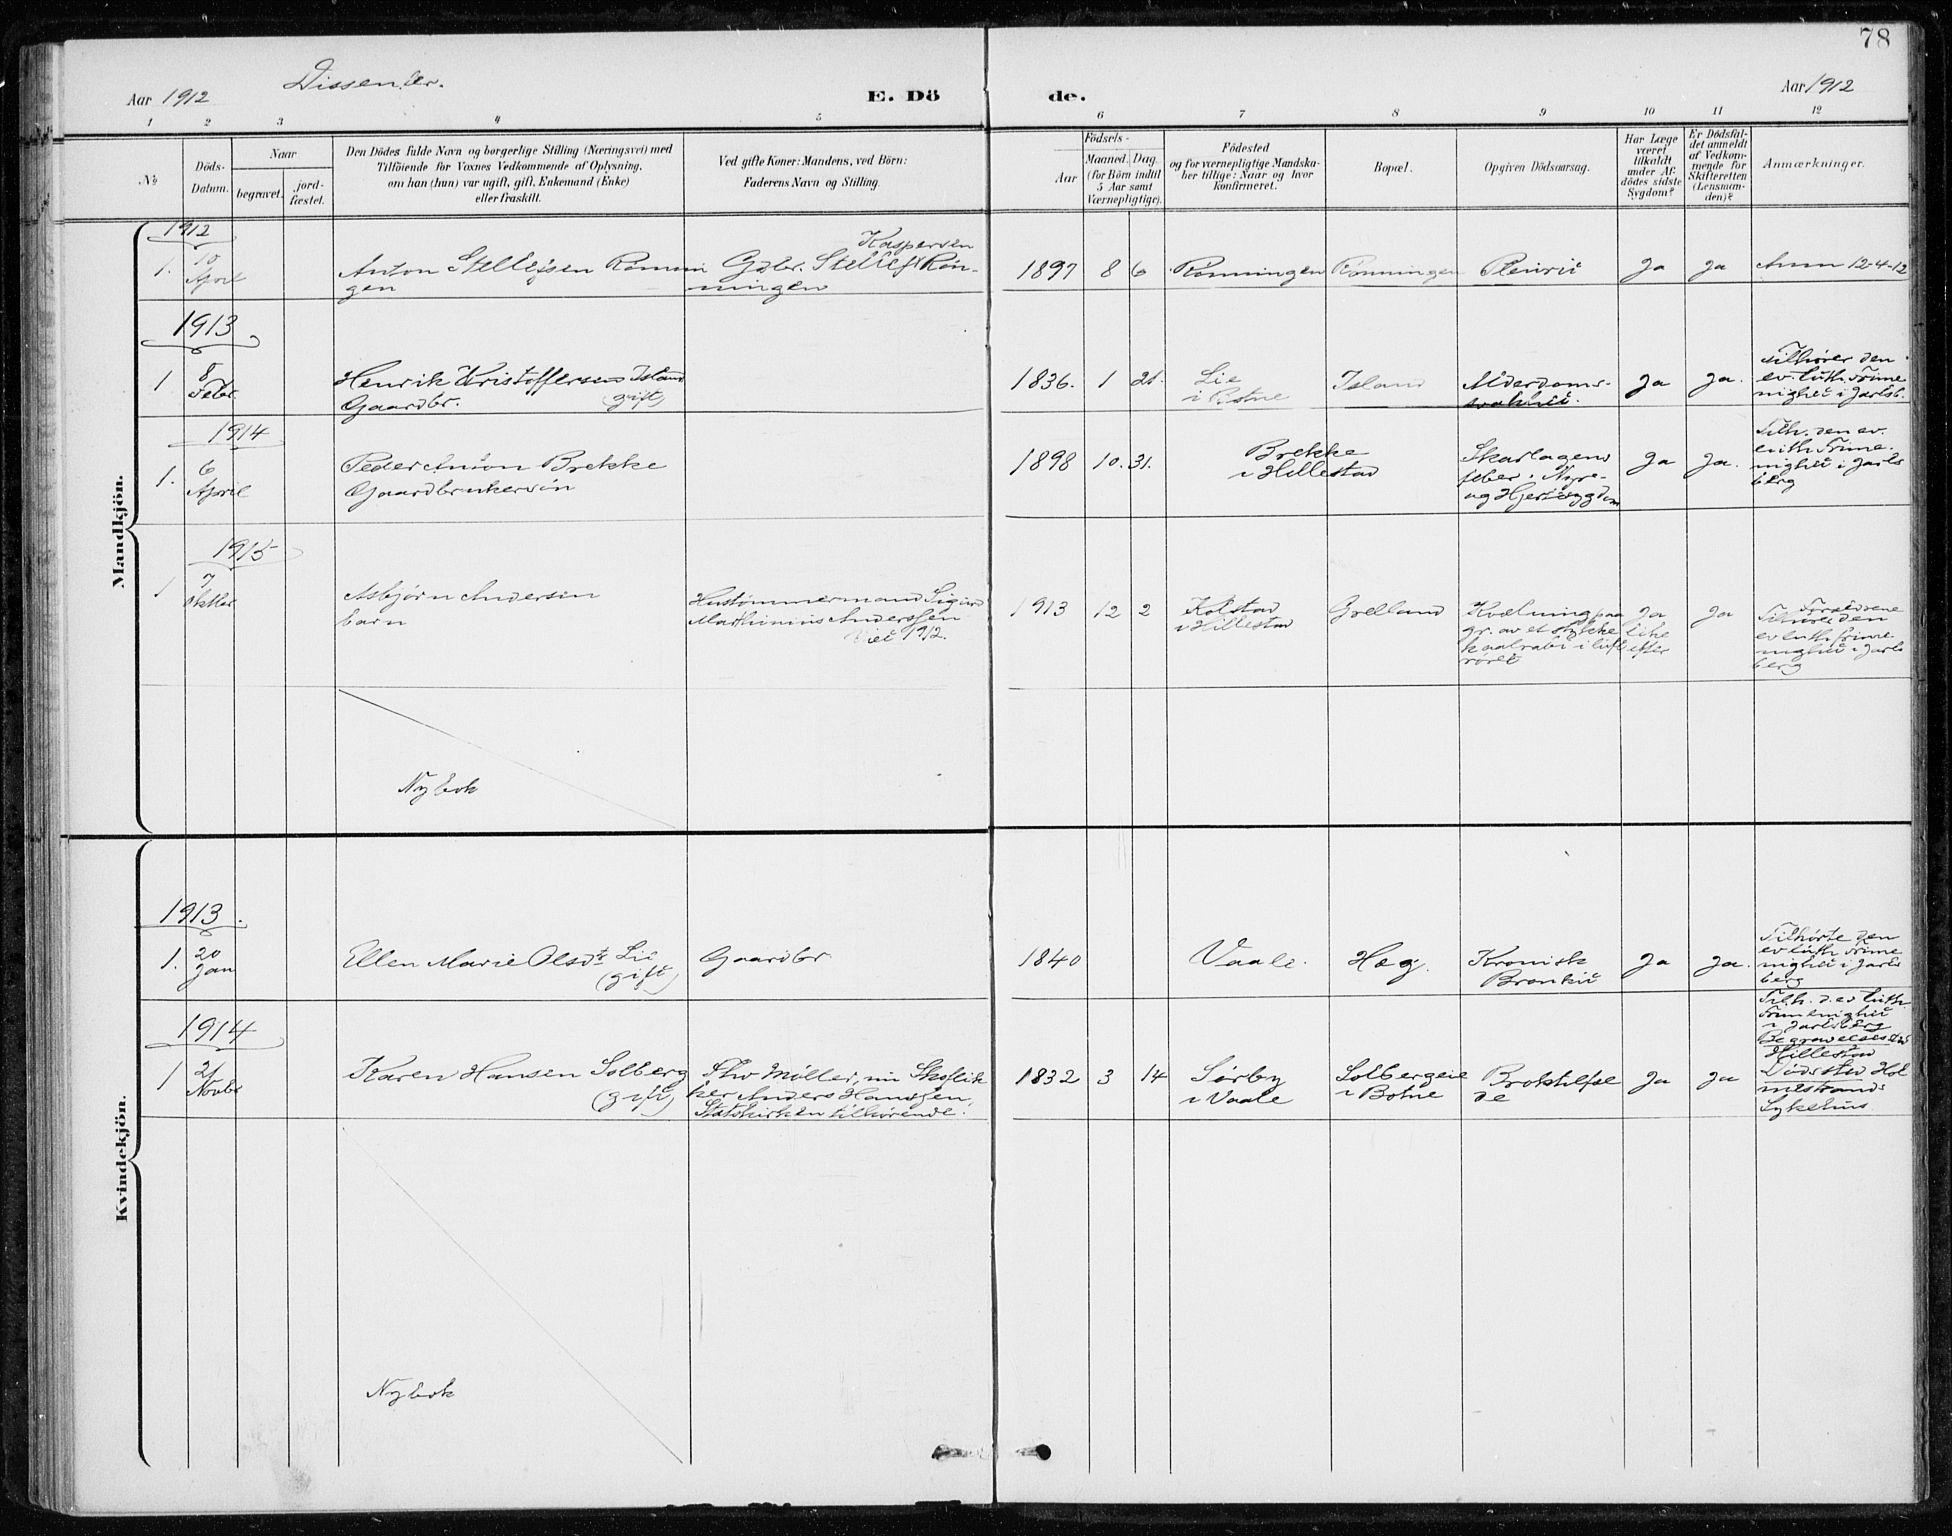 78
Dissenter.
Aar 1912
E. Dö
de.
Aar 1912
1 2 3 4 5 6 7 8 9 10 11 12
No
Döds-
Datum.
Naar
begravet.
jord-
fæstet.
Den Dödes fulde Navn og borgerlige Stilling (Næringsvei) med
Tilföiende for Voxnes Vedkommende af Oplysning,
om han (hun) var ugift, gift, Enkemand (Enke)
eller fraskilt.
Ved gifte Koner: Mandens, ved Börn:
Faderens Navn og Stilling.
Födsels-
Aar
Maaned. Dag.
(for Börn indtil
5 Aar samt
Værnepligtige).
Födested
og for værnepligtige Mandska-
ber tillige: Naar og hvor
konfirmeret.
Bopæl.
Opgiven Dödsaarsag.
Har Læge
været
tilkaldt
under Af-
dödes sidste
Sygdom?
Er Dödsfal-
det anmeldt
af Vedkom-
mende for
Skifteretten
(Lensman-
den)?
Anmærkninger.
Mandkjön.
1912
1. 10
April
Anton Stellefsen Rønnin
gen
Kaspersen
Gdbr. Stellef Røn-
ningen
1897 8 6
Rønningen
Rønningen
Pleurit
Ja
Ja
Anm 12-4-12
1913
1 8
Febr.
Henrik Kristoffersen Island
Gaardbr. (gift)
1836. 1 21.
Lie
i Botne
Island
Alderdoms-
svakhet.
Ja
Ja.
Tilhører den
ev. luth. Frime
nighet i Jarlsb.
1914
1. 6
April
Peder Anton Brekke
Gaardbrukersøn
1898 10. 31.
Brekke
i Hillestad
Skarlagens
feber, Nyre-
og Hjertesygdom
Ja
Ja.
Tilh. den ev.
luth. Frime-
nighet i Jarls
berg
1915
1 7
Oktbr.
Asbjørn Andersen
barn
Hustømmermand Sigurd
Marthinius Anderssen
Viet 1912.
1913 12 2
Kolstad
i Hillestad
Grelland
Kvælning paa
gr. av et stykke
kaalrabi i luft
røret
Ja
like
efter
Ja
Forældrene
Tilhører den
ev luth. frime
nighet i Jarls
berg
Ny bok
Kvindekjön.
1913.
1. 20
Jan
Ellen Marie Olsdt Lie
(gift)
Gaardbr.
1840
Vaale.
Hag.
Kronisk
Bronkit
Ja
Ja.
Tilhørte den
ev luth Frime
nighet i Jarls
berg
1914
1 21
Novbr
Karen Hansen Solberg
(gift)
Thv Møller, nu Skoflik
ker Anders Hanssen,
Statskirken tilhørende.
1832 3 14
Sørby
i Vaale
Solbergeie
i Botne
Broktilfæl
de
Ja
Ja
Tilh. d. ev luth.
Frimenighet
i Jarlsberg
Begravelsessted
Hillestad
Dødssted Hol
mestrands
Sykehus.
Ny bok